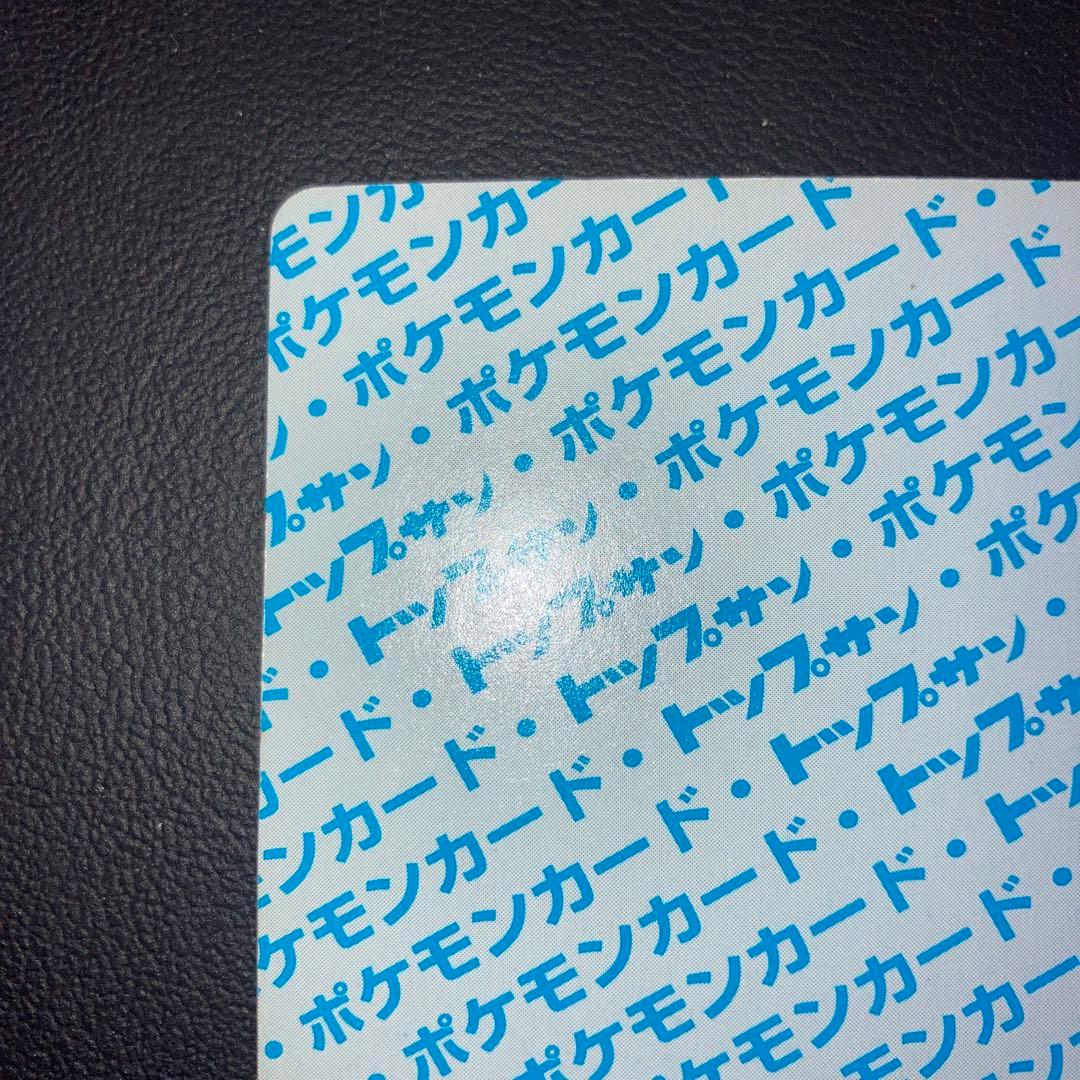 モンカ
ポケモンカー
ン・ポケモンカー
プサン・ポケモンカード
トップサン・ポケモンカード・
ド・トップサン・ポケモンカード
カード・トップサン・ポケモンカ
ンカード・トップサン・ポケモン
ケモンカード・トップサン・ポケ
・ポケモンカード・トップサン・
ポケモンカード・トップサ
ポケモンカード・トッ
ケモンカード・
モンカー